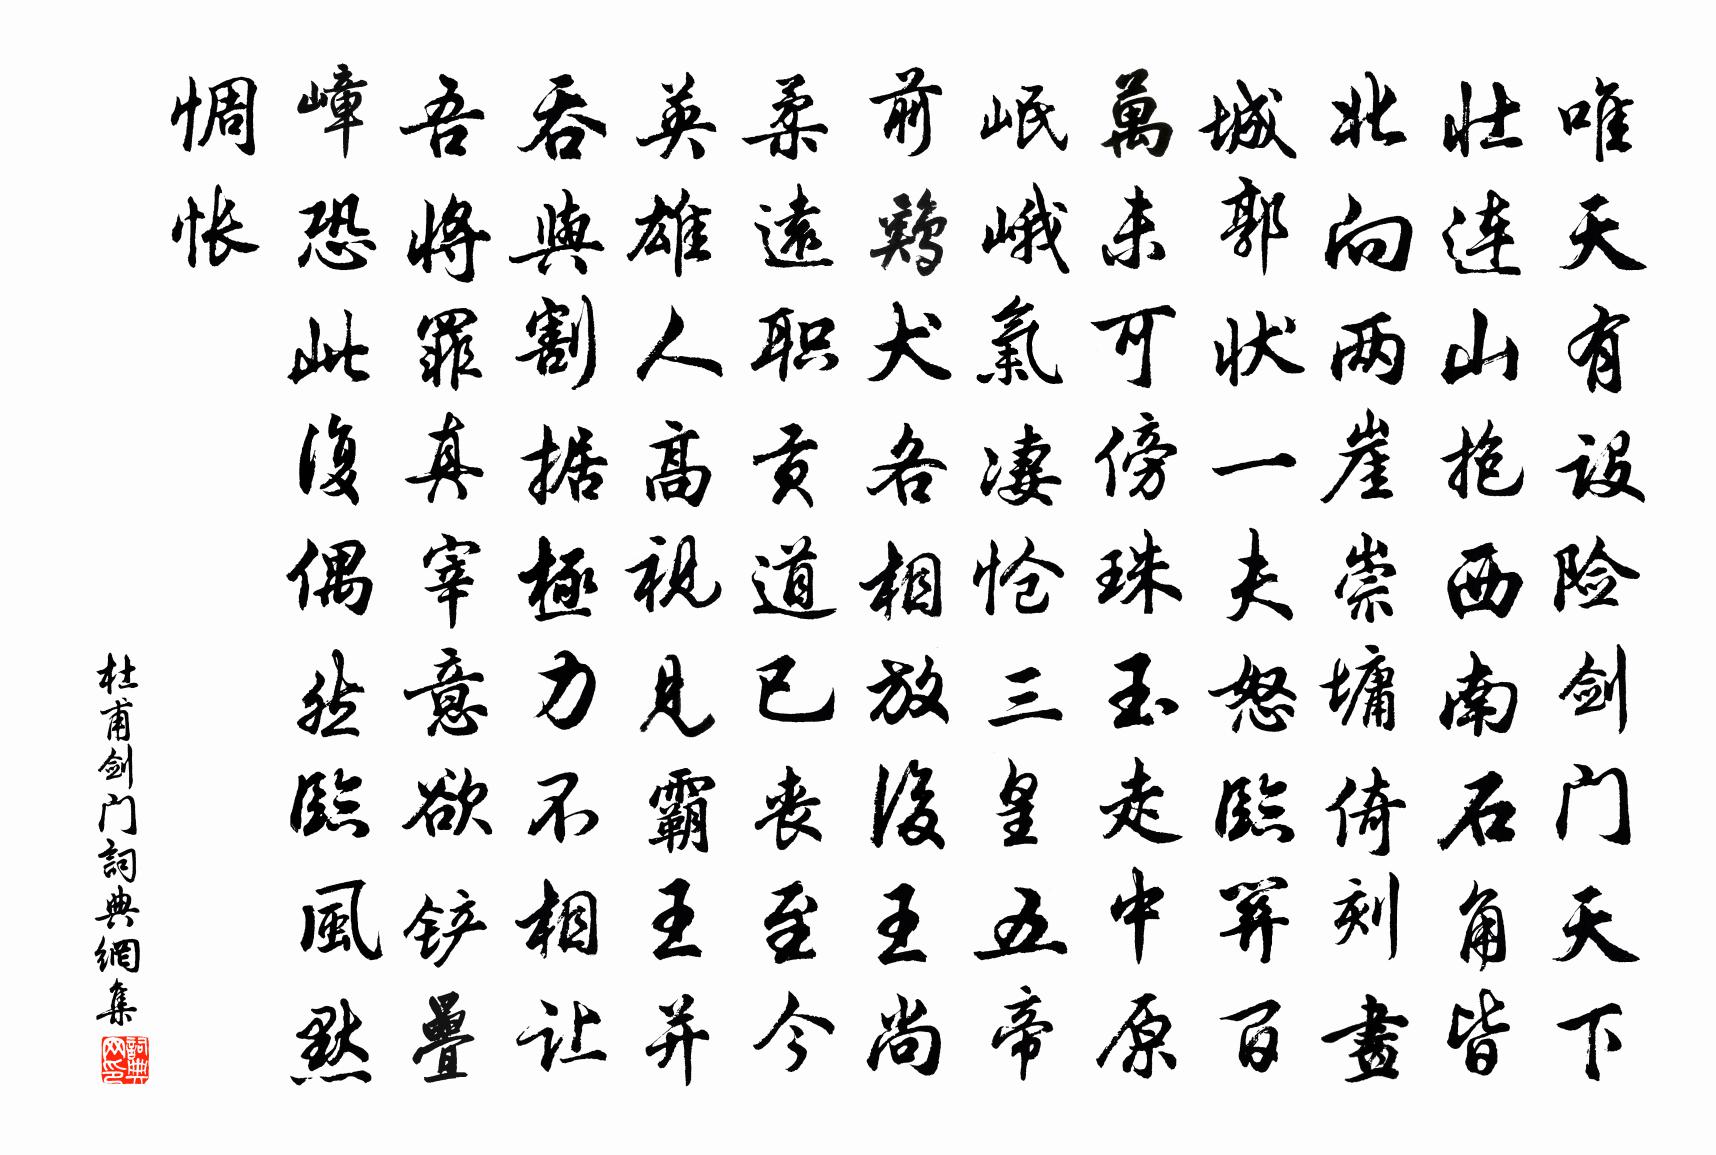 唯天有设险剑门天下
壮连山抱西南石角皆
北向两崖崇墉倚刻畫
城郭状一夫怒臨関百
萬未可傍珠玉走中原
岷峨氣凄怆三皇五帝
前鷄犬各相放後王尚
柔遠职贡道已丧至今
英雄人高視見霸王并
吞與割据極力不相让
吾将罪真宰意欲铲疊
嶂恐此復偶然臨風默
惆怅
杜甫剑门詞典網集
詞典网印